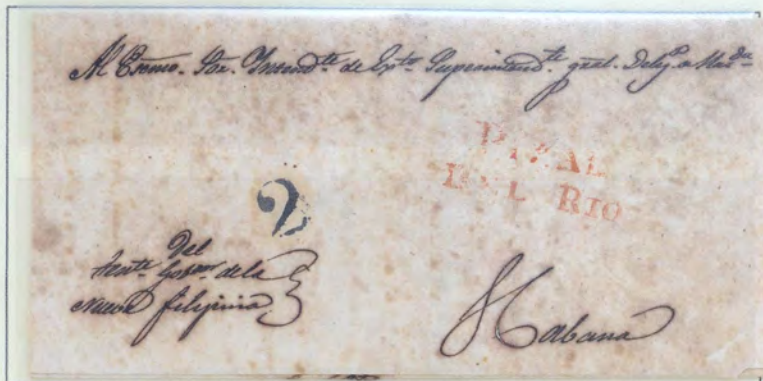 Al Exmo. Sor. Intend.te de Exto. Superintend.te gral. Deleg.o
PINAL
DEL RIO
2
Del
Tente. Gobor. de la
Nueva filipina
Habana